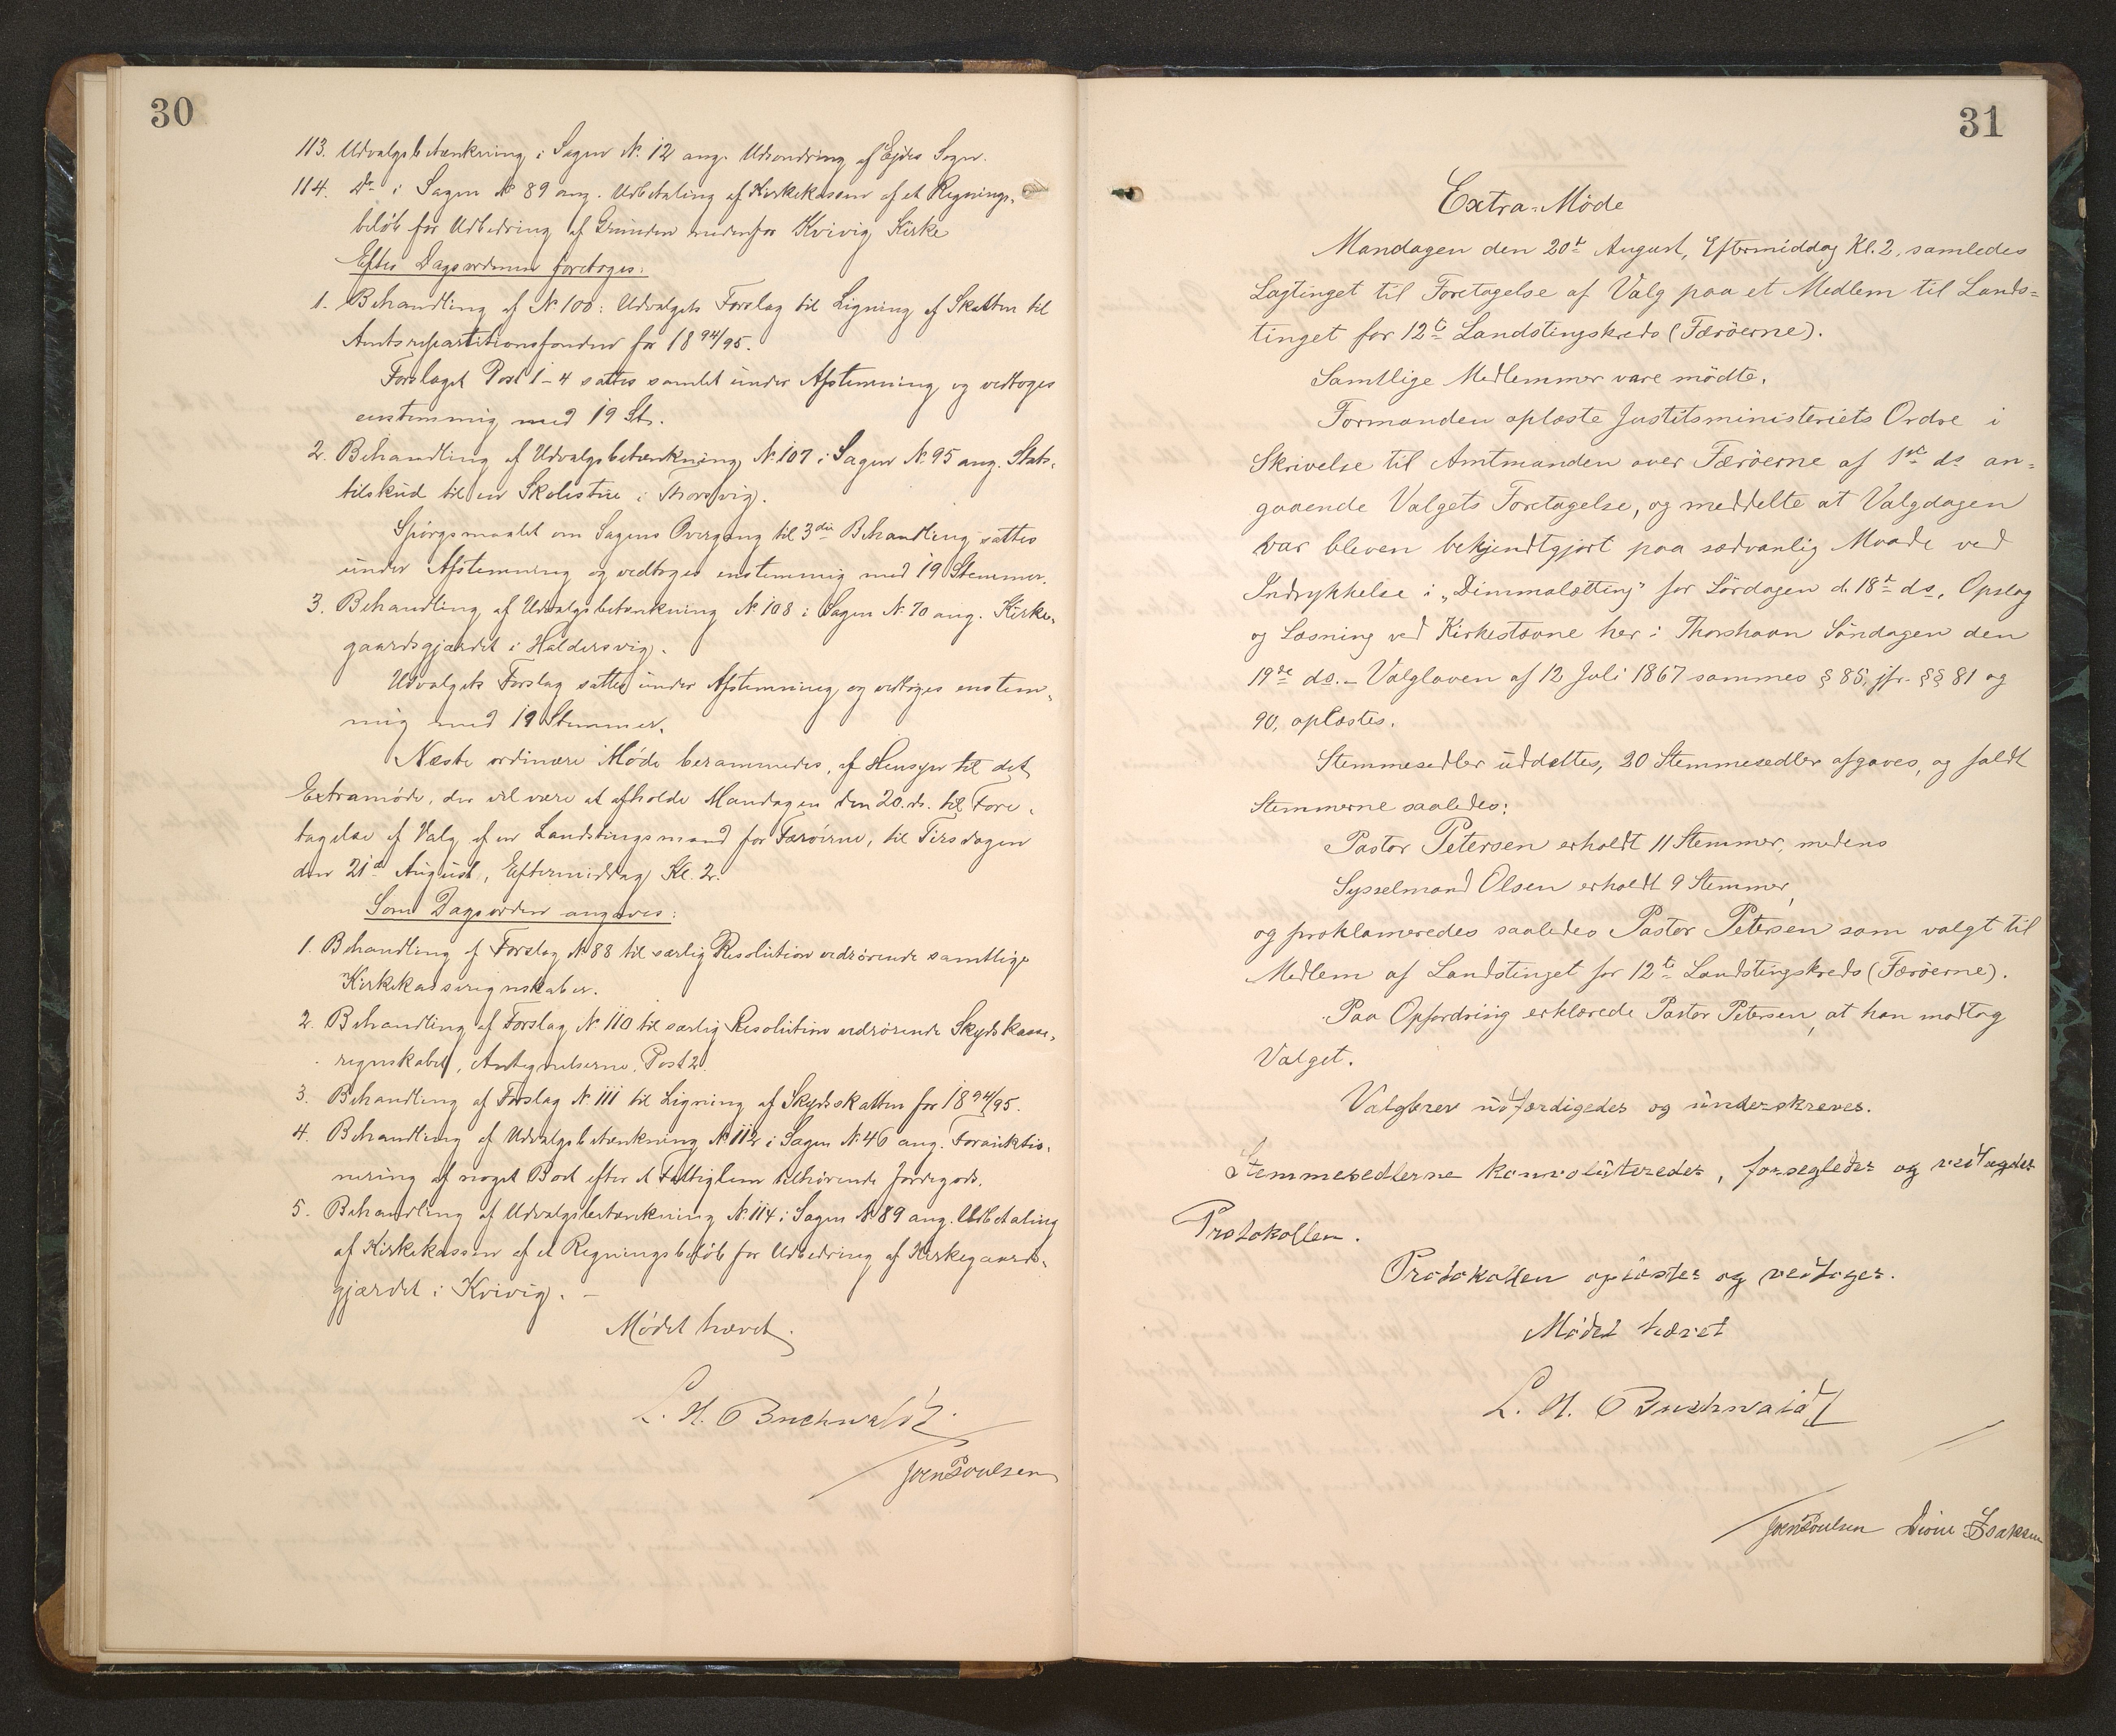 30
113. Udvalgsbetænkning i Sagen № 12 ang. Udsondring af Ejdes Sogn.
114. Do i Sagen № 89 ang. Udbetaling af Kirkekassen af et Regnings-
beløb for Udbedring af Grunden nedenfor Kvivig Kirke
Efter Dagsordenen foretoges:
1. Behandling af № 100: Udvalgets Forslag til Ligning af Skatten til
Amtsrepartitionsfonden for 1894/95.
Forslaget Post 1-4 sattes samlet under Afstemning og vedtoges
enstemmig med 19 St.
2. Behandling af Udvalgsbetænkning № 107 i Sagen № 95 ang. Stats-
tilskud til en Skolestue i Thorsvig.
Spörgsmaalet om Sagens Overgang til 3die Behandling sattes
under Afstemning og vedtoges enstemmig med 19 Stemmer.
3. Behandling af Udvalgsbetænkning № 108 i Sagen № 70 ang. Kirke-
gaardsgjærdet i Haldersvig.
Udvalgets Forslag sattes under Afstemning og vedtoges enstem-
mig med 19 Stemmer.
Næste ordinære Møde berammedes, af Hensyn til det
Extramøde, der vil være at afholde Mandagen den 20. ds. til Fore-
tagelse af Valg af en Landstingsmand for Færöerne, til Tirsdagen
den 21de August, Eftermiddag Kl. 2.
Som Dagsorden angaves:
1. Behandling af Forslag № 88 til særlig Resolution vedrörende samtlige
Kirkekasseregnskaber.
2. Behandling af Forslag № 110 til særlig Resolution vedrörende Skydskasse-
regnskabet, Antegnelserne, Post 2.
3. Behandling af Forslag № 111 til Ligning af Skydsskatten for 1894/95.
4. Behandling af Udvalgsbetænkning № 112 i Sagen № 46 ang. Forauktio-
nering af noget Boet efter et Fattiglem tilhørende Jordegods.
5. Behandling af Udvalgsbetænkning № 114 i Sagen № 89 ang. Udbetaling
af Kirkekassen af et Regningsbeløb for Udbedring af Kirkegaards-
gjærdet i Kvivig. –
Mødet hævet.
L. H. Buchwaldt.
Joen Poulsen
31
Extra-Møde
Mandagen den 20de August, Eftermiddag Kl. 2, samledes
Lagtinget til Foretagelse af Valg paa et Medlem til Lands=
tinget for 12te Landstingskreds (Færöerne).
Samtlige Medlemmer vare mödte.
Formanden oplæste Justitsministeriets Ordre i
Skrivelse til Amtmanden over Færöerne af 1ste ds an=
gaaende Valgets Foretagelse, og meddelte at Valgdagen
var bleven bekjendtgjort paa sædvanlig Maade ved
Indrykkelse i „Dimmalætting" for Lördagen d. 18de ds, Opslag
og Læsning ved Kirkestævne her i Thorshavn Söndagen den
19de ds. – Valgloven af 12 Juli 1867 sammes § 85, jfr. §§ 81 og
90, oplæstes.
Stemmesedler uddeltes, 20 Stemmesedler afgaves, og faldt
Stemmerne saaledes:
Pastor Petersen erholdt 11 Stemmer, medens
Sysselmand Olsen erholdt 9 Stemmer,
og proklameredes saaledes Pastor Petersen som valgt til
Medlem af Landstinget for 12te Landstingskreds (Færöerne).
Paa Opfordring erklærede Pastor Petersen, at han modtog
Valget.
Valgbrev udfærdigedes og underskreves.
Stemmesedlerne konvoluteredes, forsegledes og vedlagdes
Protokollen.
Protokollen oplæstes og vedtoges.
Mødet hævet
L. H. Buchwaldt
Joen Poulsen Isaksen